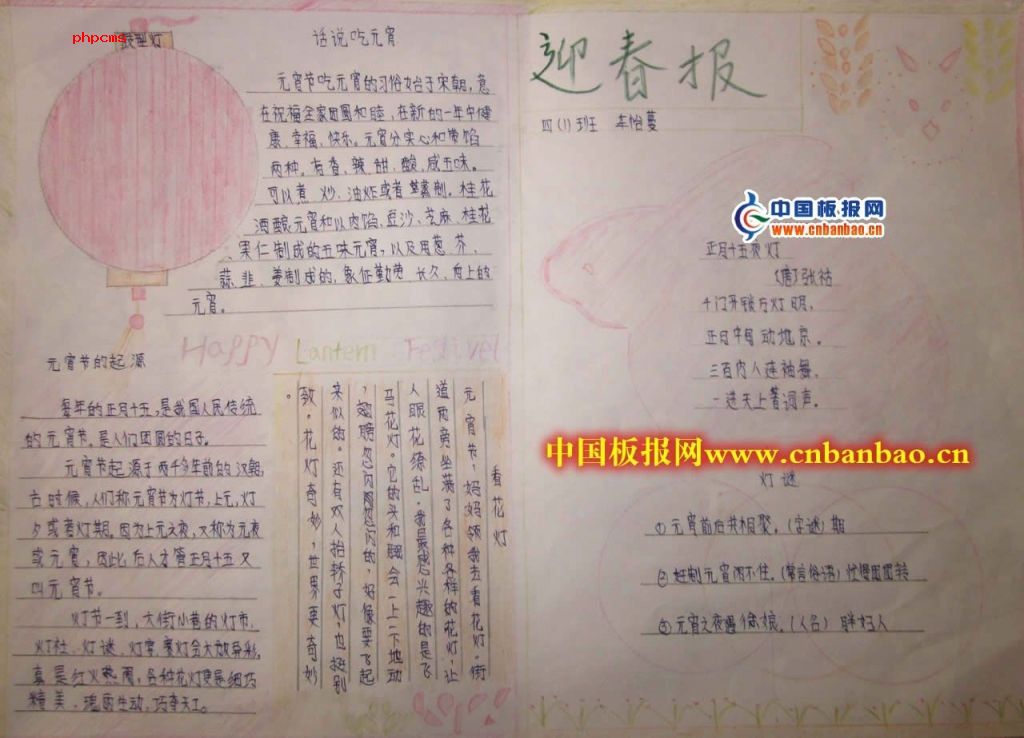 phpcms
鼓型灯
话说吃元宵
元宵节吃元宵的习俗始于宋朝,意
在祝福全家团圆和睦,在新的一年中健
康、幸福、快乐。元宵分实心和带馅
两种。有香、辣、甜、酸、咸五味。
可以煮、炒、油炸或者蒸制。桂花
酒酿元宵和以肉馅、豆沙、芝麻、桂花
、果仁制成的五味元宵,以及用葱、芥、
蒜、韭、姜制成的,象征勤劳、长久、向上的
元宵。
Happy Lantern Festivel
元宵节的起源
每年的正月十五,是我国人民传统
的元宵节。是人们团圆的日子。
元宵节起源于两千多年前的汉朝,
古时候,人们称元宵节为灯节,上元,灯
夕或者灯期。因为上元之夜,又称为元夜
或元宵,因此,后人才管正月十五又
叫元宵节。
灯节一到,大街小巷的灯市,
灯社、灯谜、灯宴,赛灯会大放异彩,
真是红火热闹,各种花灯更是细巧
精美、逼面生动,巧夺天工。
看花灯
元宵节,妈妈领我去看花灯,街
道两旁坐满了各种各样的花灯,让
人眼花缭乱。我最感兴趣的是飞
马花灯。它的头和腿会一上一下地动
,翅膀忽闪忽闪的,好像要飞起
来似的。还有双人抬轿子灯,也挺别
致。花灯奇妙,世界更奇妙
。
迎春报
四(1)班 车怡蔓
中国板报网
www.cnbanbao.cn
正月十五夜灯
(唐)张祜
千门开锁万灯明,
正月中旬动地京。
三百内人连袖舞,
一进天上著词声。
中国板报网www.cnbanbao.cn
灯谜
①元宵前后共相聚。(字谜)期
②赶制元宵闲不住。(常言俗语)忙得团团转
③元宵之夜遇徐娘。(人名)